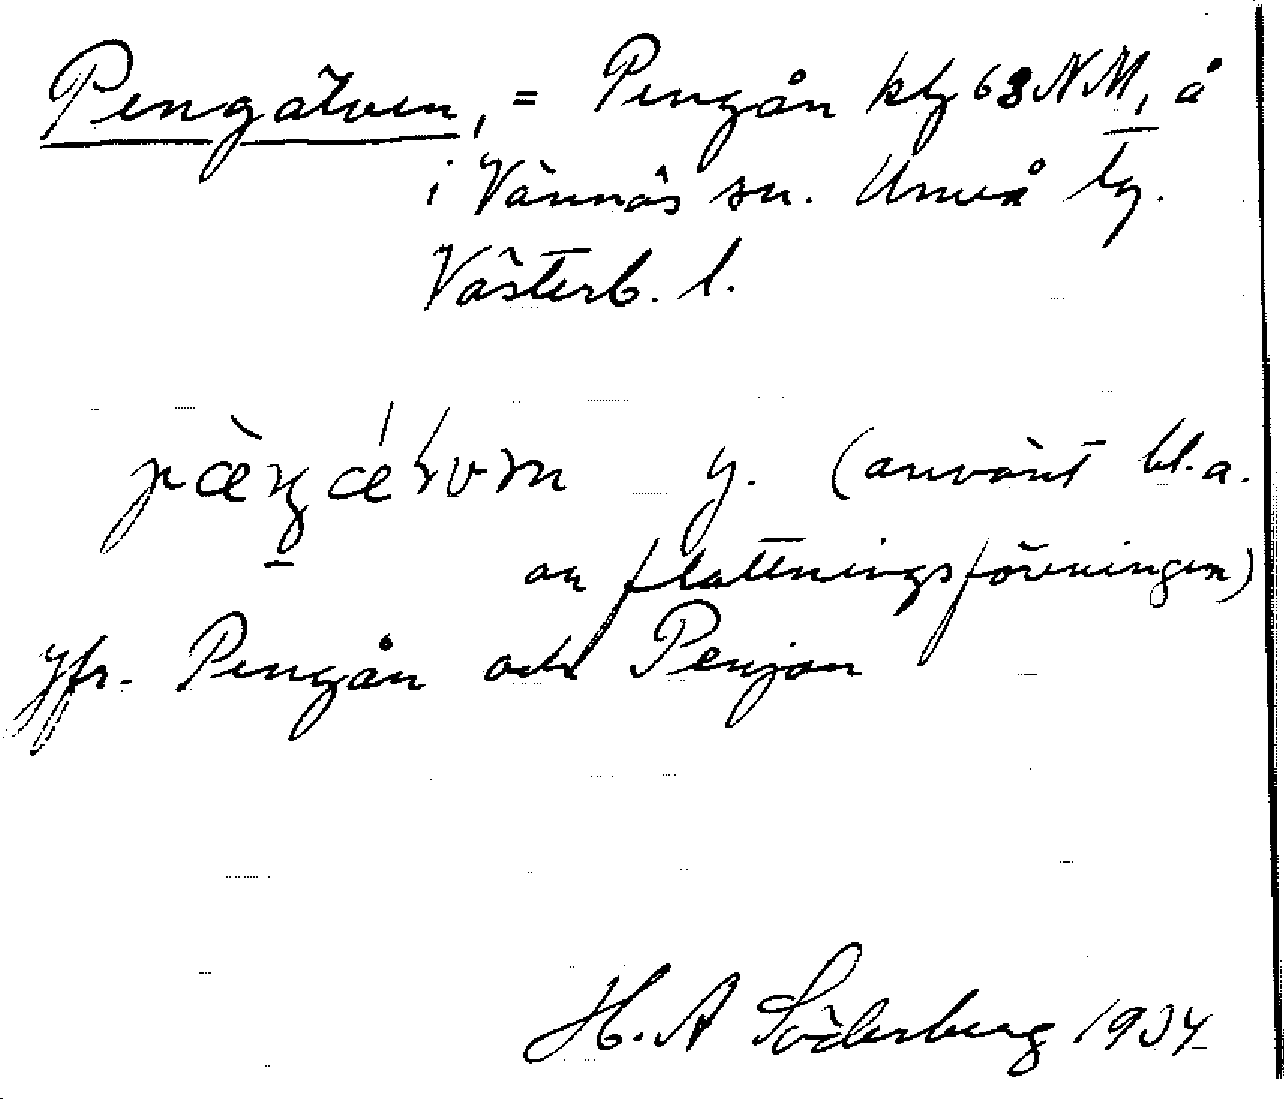 Pengälven, = Pengån kbl 63 NM, å
i Vännäs sn. Umeå tg.
Västerb. l.
y. (använt bl.a.
av flottningsföreningen)
Jfr. Pengån och Penjan
H. A Söderberg 1934